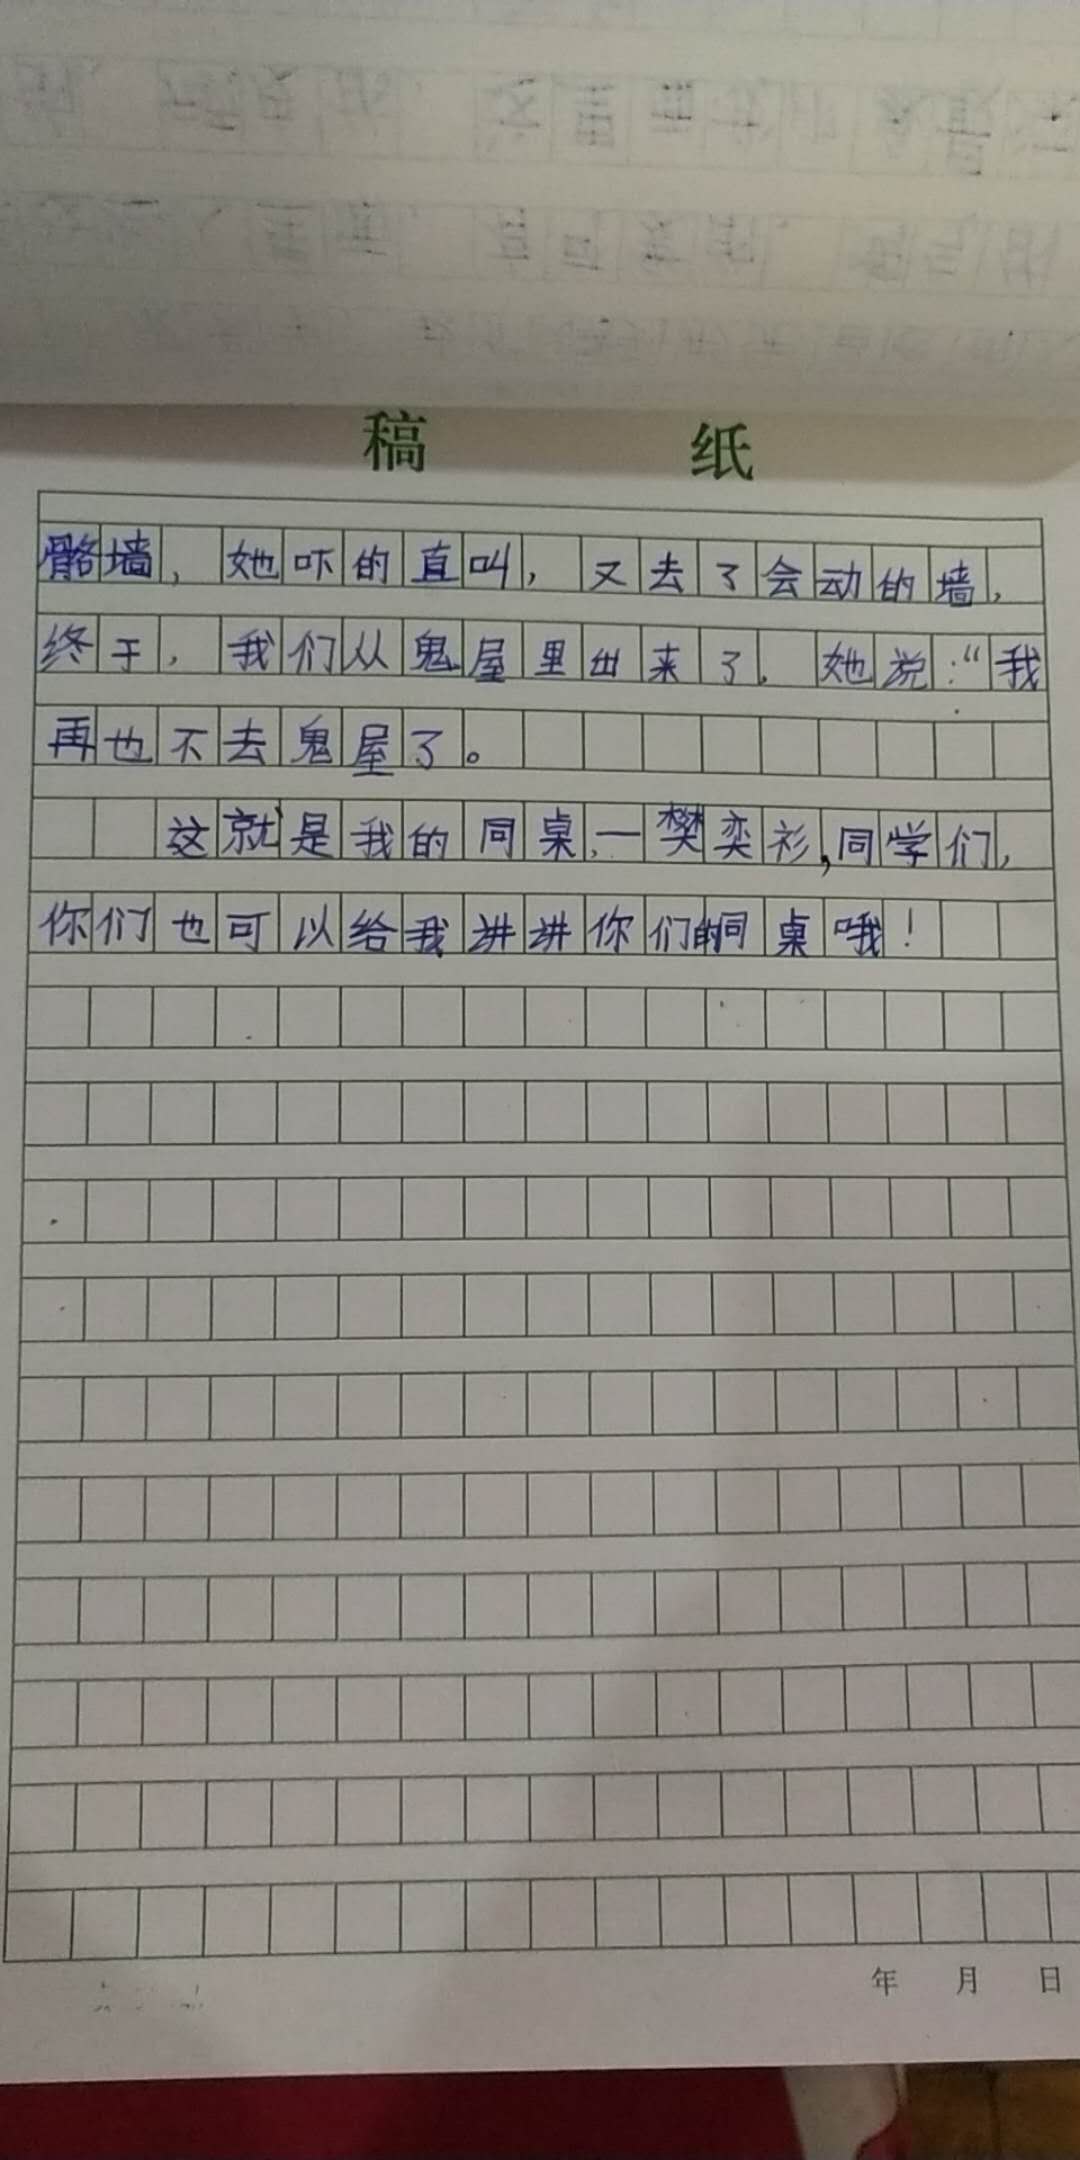 稿 纸
骼墙，她吓的直叫，又去了会动的墙，
终于，我们从鬼屋里出来了。她说：“我
再也不去鬼屋了。
这就是我的同桌，一樊奕衫，同学们，
你们也可以给我讲讲你们的同桌哦！
年 月 日